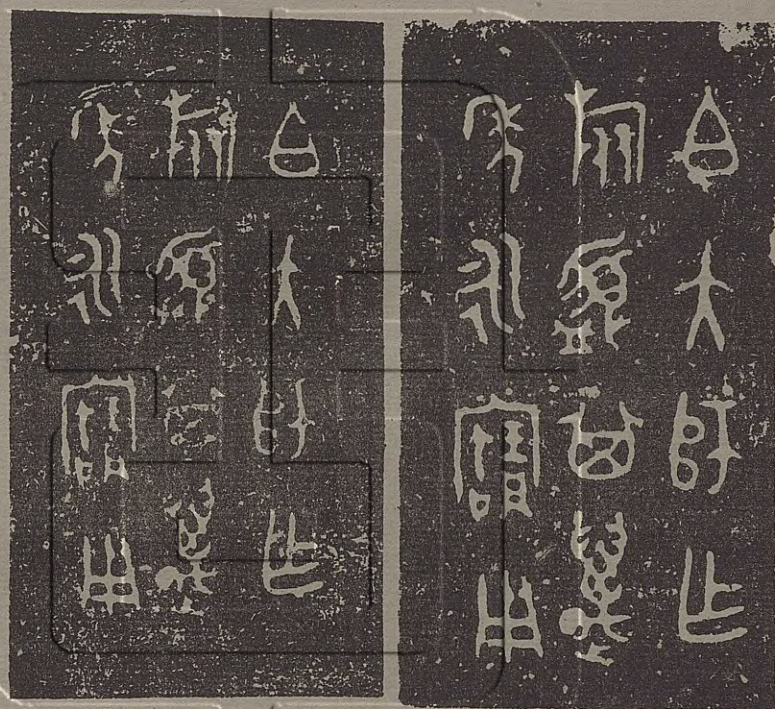 白大師乍
旅盨其萬
年永寶用
白大師乍
旅盨其萬
年永寶用